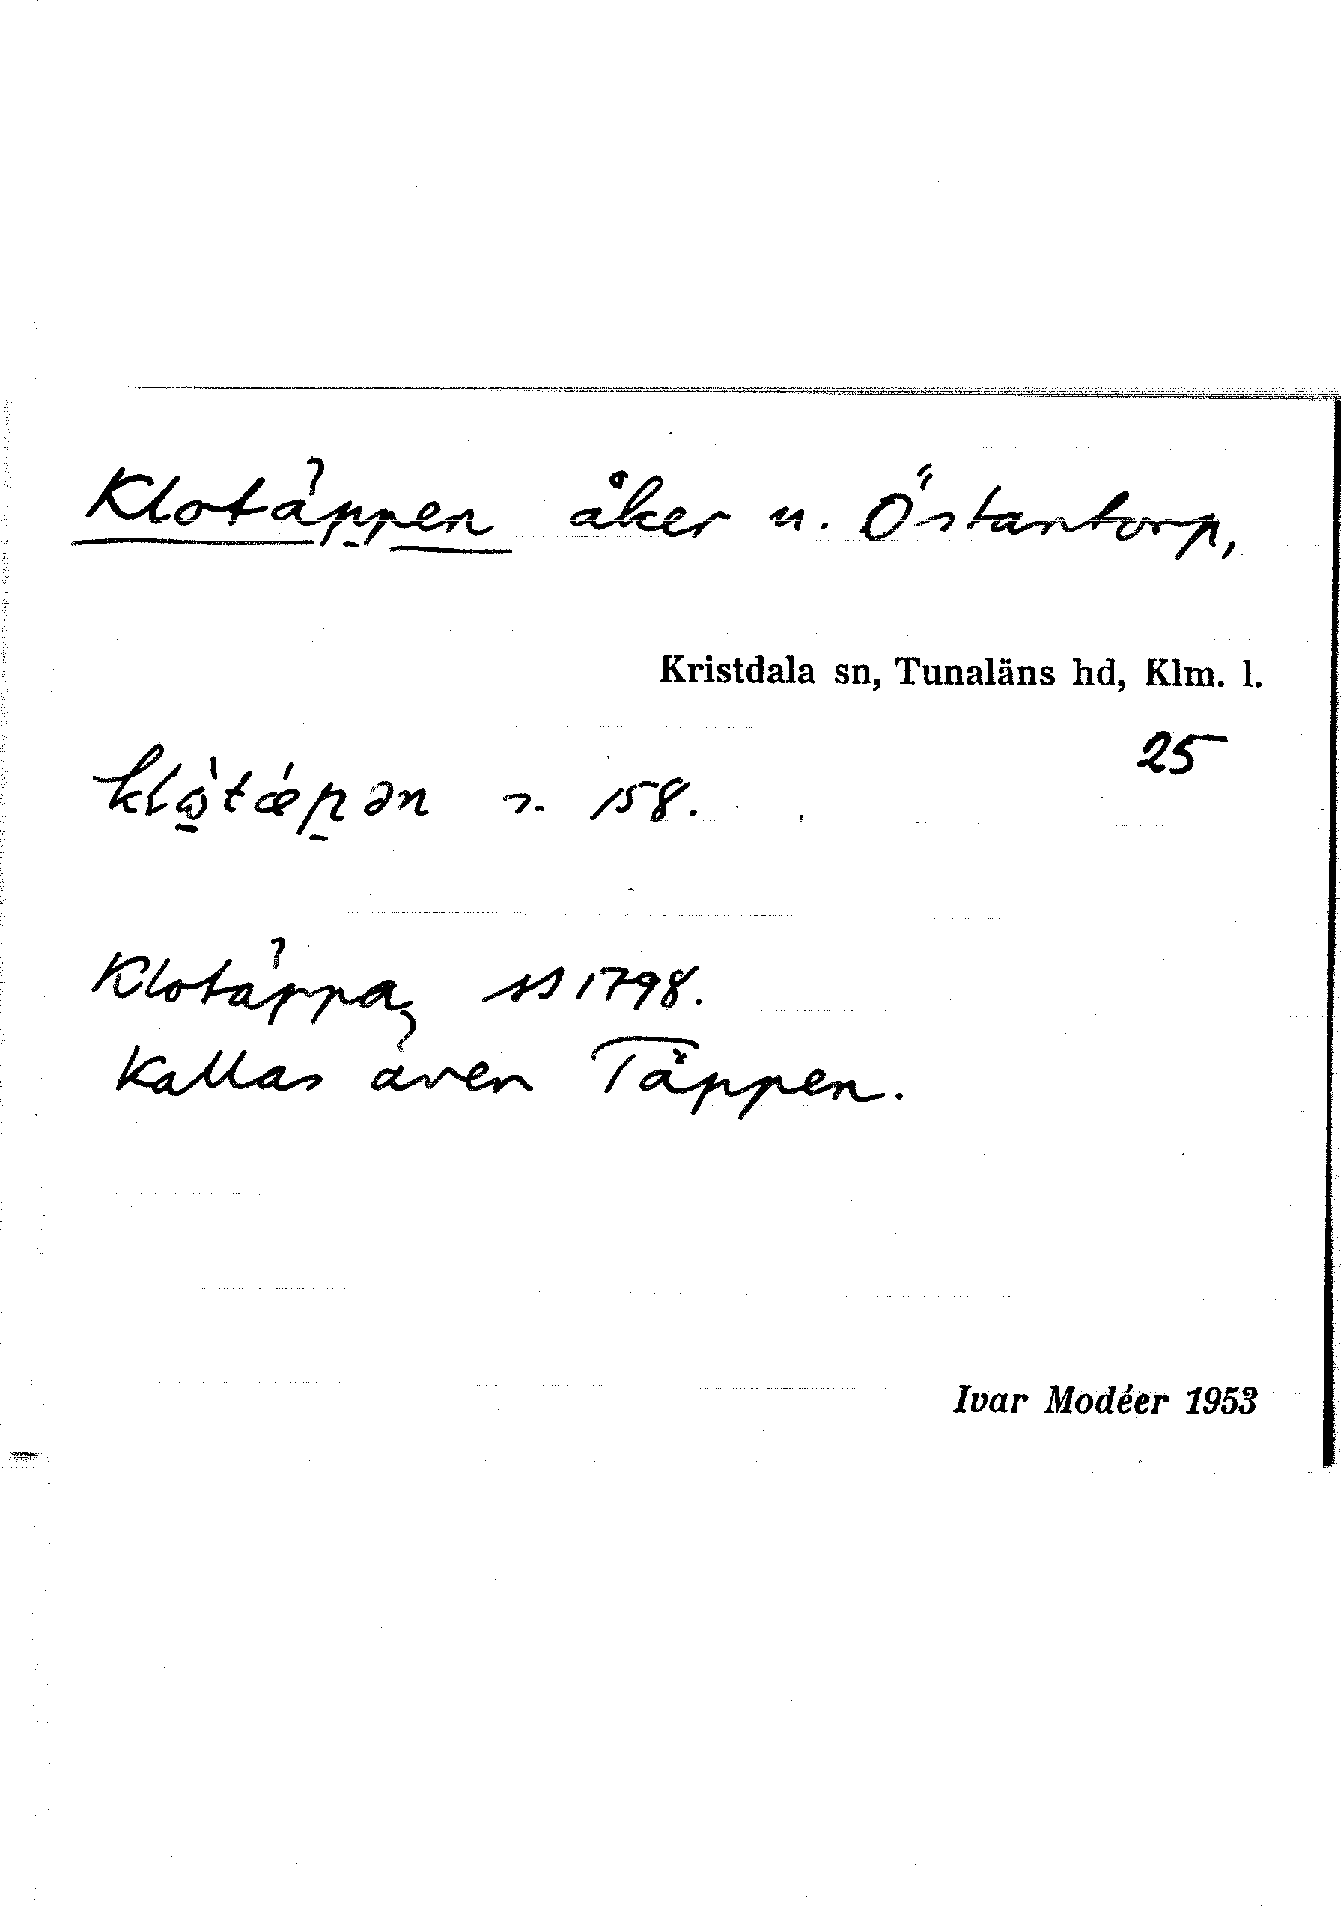 Klotäppen åker u. Östantorp,
Kristdala sn, Tunaläns hd, Klm. l.
25
158.
Klotäppa 1798.
Kallas även Täppen.
Ivar Modéer 1953